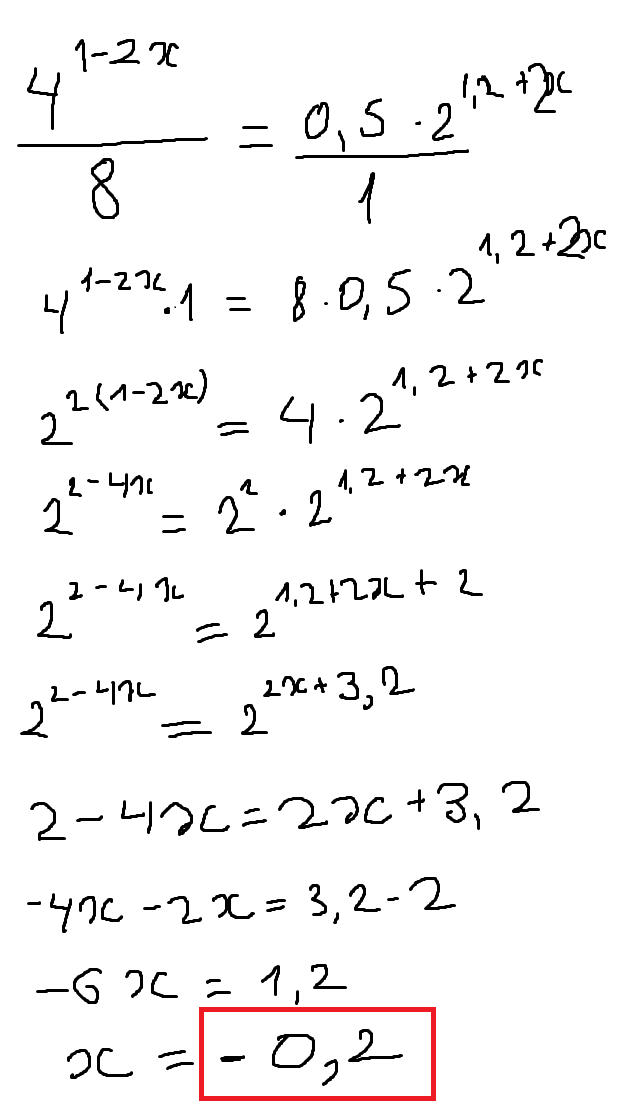 4^(1-2x) / 8 = 0,5 · 2^(1,2+2x) / 1
4^(1-2x) · 1 = 8 · 0,5 · 2^(1,2+2x)
2^(2(1-2x)) = 4 · 2^(1,2+2x)
2^(2-4x) = 2^2 · 2^(1,2+2x)
2^(2-4x) = 2^(1,2+2x+2)
2^(2-4x) = 2^(2x+3,2)
2-4x=2x+3,2
-4x-2x=3,2-2
-6x=1,2
x=-0,2